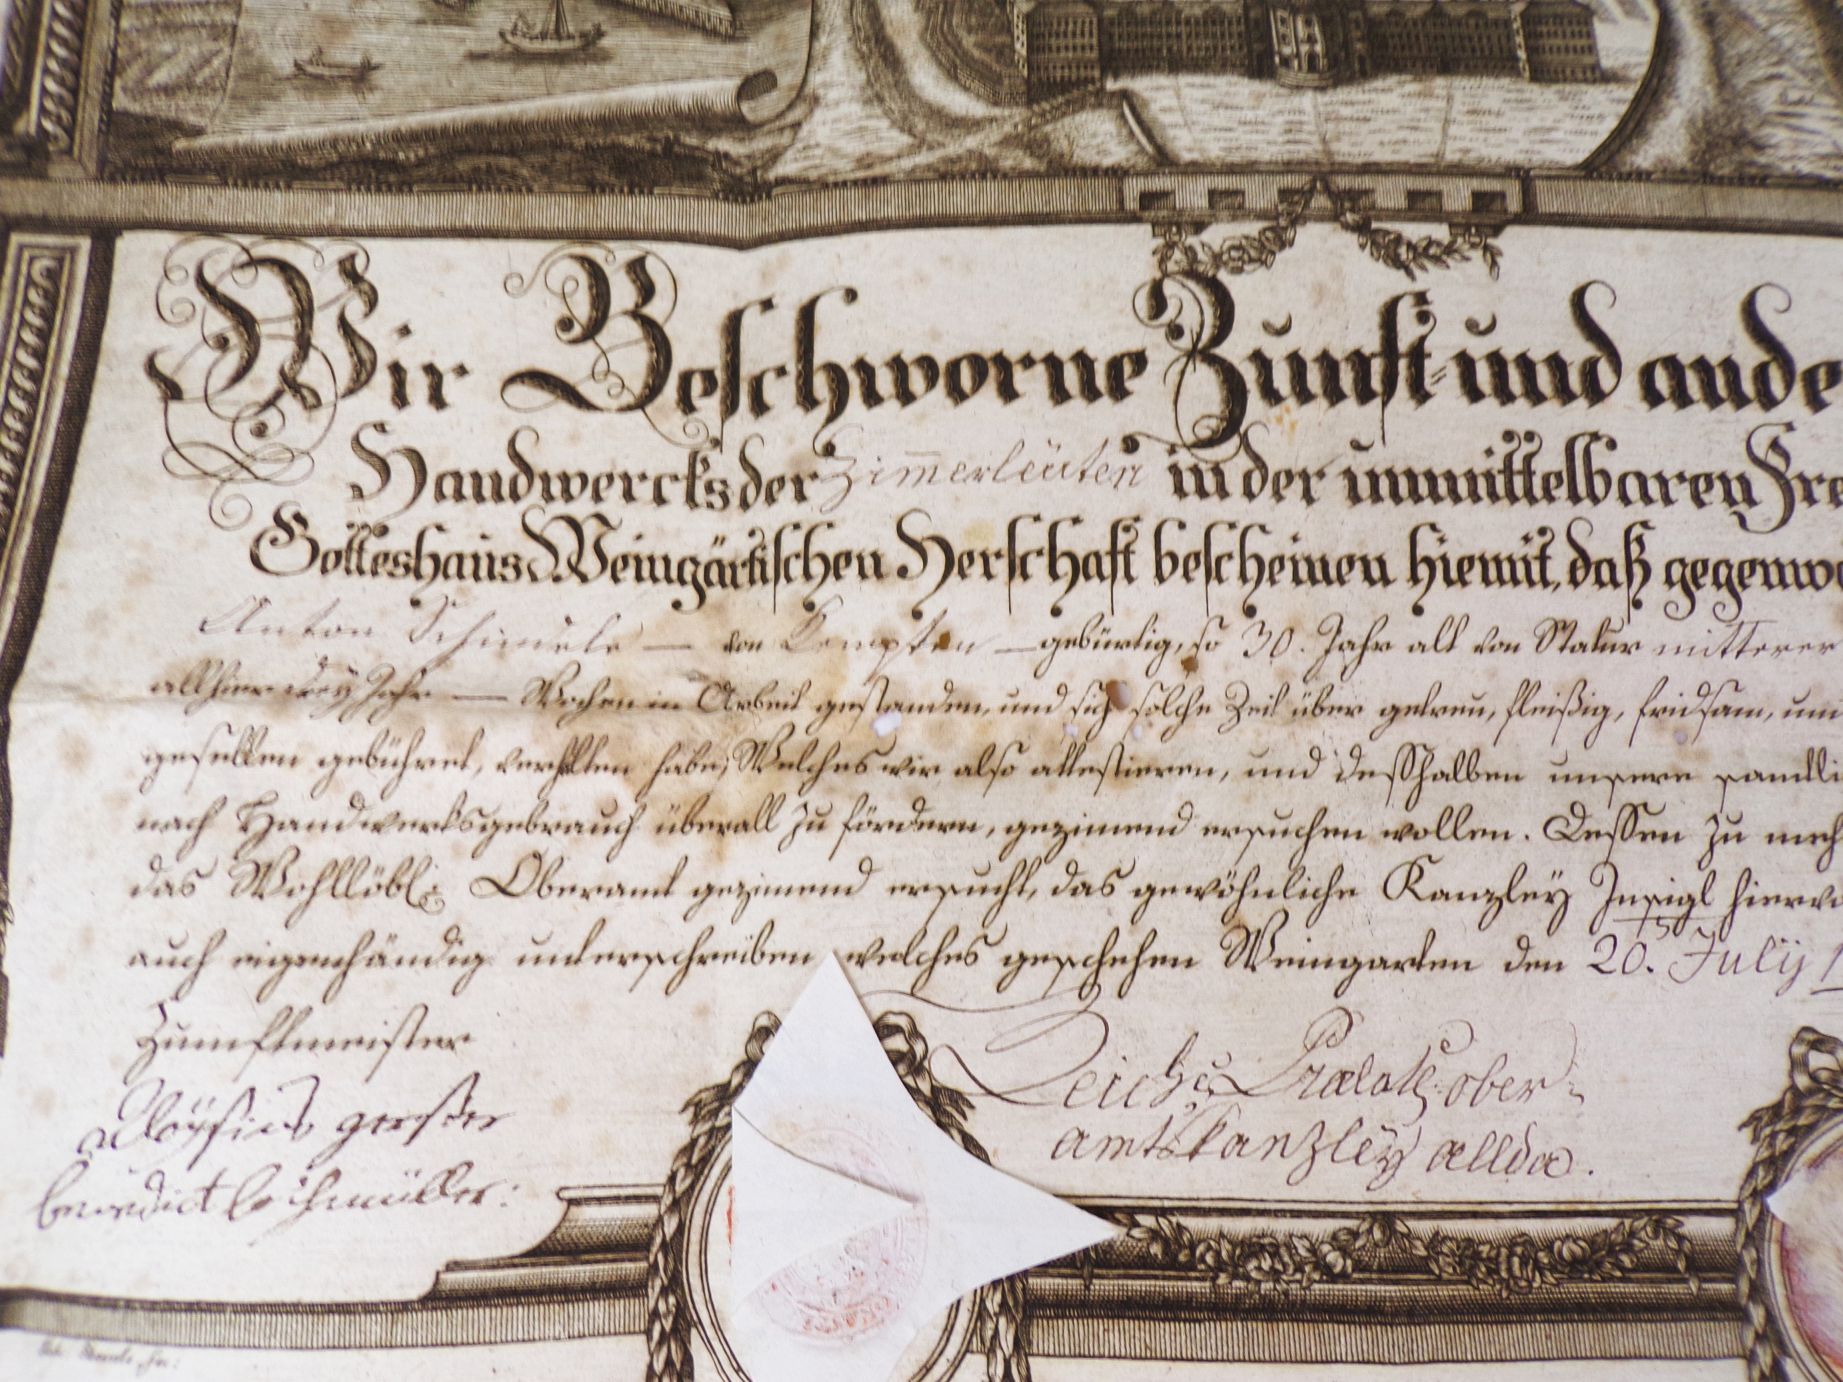 Wir Beschworne Zunft= und ande
Handwercks der Zimerleüten in der unmittelbaren Fre
Gotteshaus Weingärtischen Herschaft bescheinen hiemit, daß gegenwä
Anton von Kempten gebürtig, so 30. Jahr alt von Statur mitterer
allhier drey Jahr — Wochen in Arbeit gestanden, und sich solche Zeit über getreu, fleißig, fridsam, un
gesellen gebühret, verhalten habe; Welches wir also attestieren, und desshalben unsere samtli
nach Handwerksgebrauch überall zu fördern, gezimend ersuchen wollen. Dessen zu meh
das Wohllöbl: Oberamt gezimend ersucht, das gewöhnliche Kanzley Insigl hiervo
auch eigenhändig unterschreiben welches geschehen Weingarten den 20. July 1
Zunftmeister
Reichs Prælat: ober=
amts kanzleÿ allda.